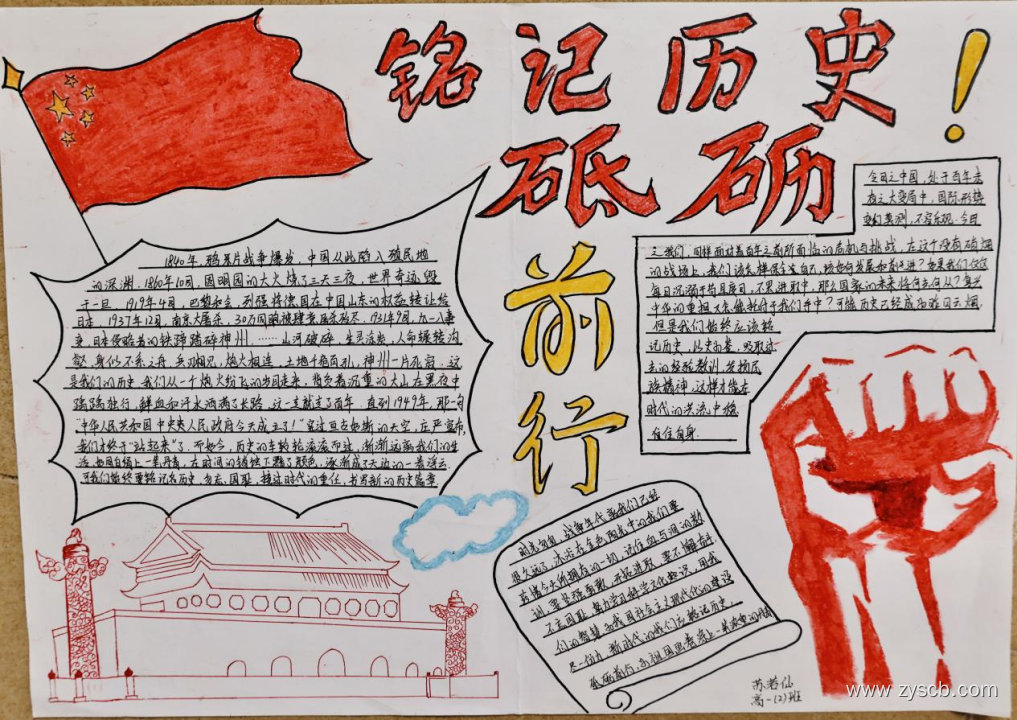 铭记历史！
砥砺
前行
1840年，鸦片战争爆发，中国从此陷入殖民地
的深渊。1860年10月，圆明园的大火烧了三天三夜，世界奇迹毁
于一旦。1919年4月，巴黎和会，列强将德国在中国山东的权益转让给
日本。1937年12月，南京大屠杀，30万同胞被屠杀殆尽。1931年9月，九一八事
变，日本侵略者的铁蹄踏碎神州。……山河破碎，生灵涂炭，人命辗转沟
壑，身似不系之舟，兵刃相见，炮火相连，土地千疮百孔，神州一片死寂。这
是我们的历史。我们从一个炮火纷飞的岁月走来，背负着沉重的大山在黑夜中
踽踽独行，鲜血和汗水洒满了长路，这一走就走了百年，直到1949年，那一句
“中华人民共和国中央人民政府今天成立了！”穿过亘古的天空，庄严宣布，
我们终于“站起来”了。而如今，历史的车轮轮滚滚而过，渐渐远离我们的生
活，如同白绢上一点丹青，在时间的中褪了颜色，逐渐成了天边的一卷浮云。
可我们始终要铭记名历史，勿忘国耻，接过时代的重任，书写新的历史篇章
今日之中国，处于百年未
有之大变局中，国际形势
变幻莫测，不容乐观。今日
之我们，同样面对着百年之前所面临的危机与挑战，在这个没有硝烟
的战场上，我们该怎样保全自己，该如何发展和前进？如果我们仅仅
每日沉溺于苟且度日，不思进取中，那么国家的未来将何去何从？复兴
中华的重担又怎能托付于我们手中？可能历史已经成为过眼云烟，
但是我们始终应该铭
记历史，以史为鉴，吸取过
去的经验教训，发扬民
族精神，这样才能在
时代的洪流中稳
住住自身。
时光匆匆，战争年代离我们已经
很久远了，沐浴在金色阳光中的我们要
珍惜今天所拥有的一切，记住血与泪的教
训，要坚强勇敢，开拓进取，要不懈奋斗，
不忘国耻，努力学习科学文化知识，用我
们的智慧为我国社会主义现代化的建设
尽一份力。新时代的我们应铭记历史，
砥砺前行，为祖国
苏若仙
高一(2)班
www.zyscb.com